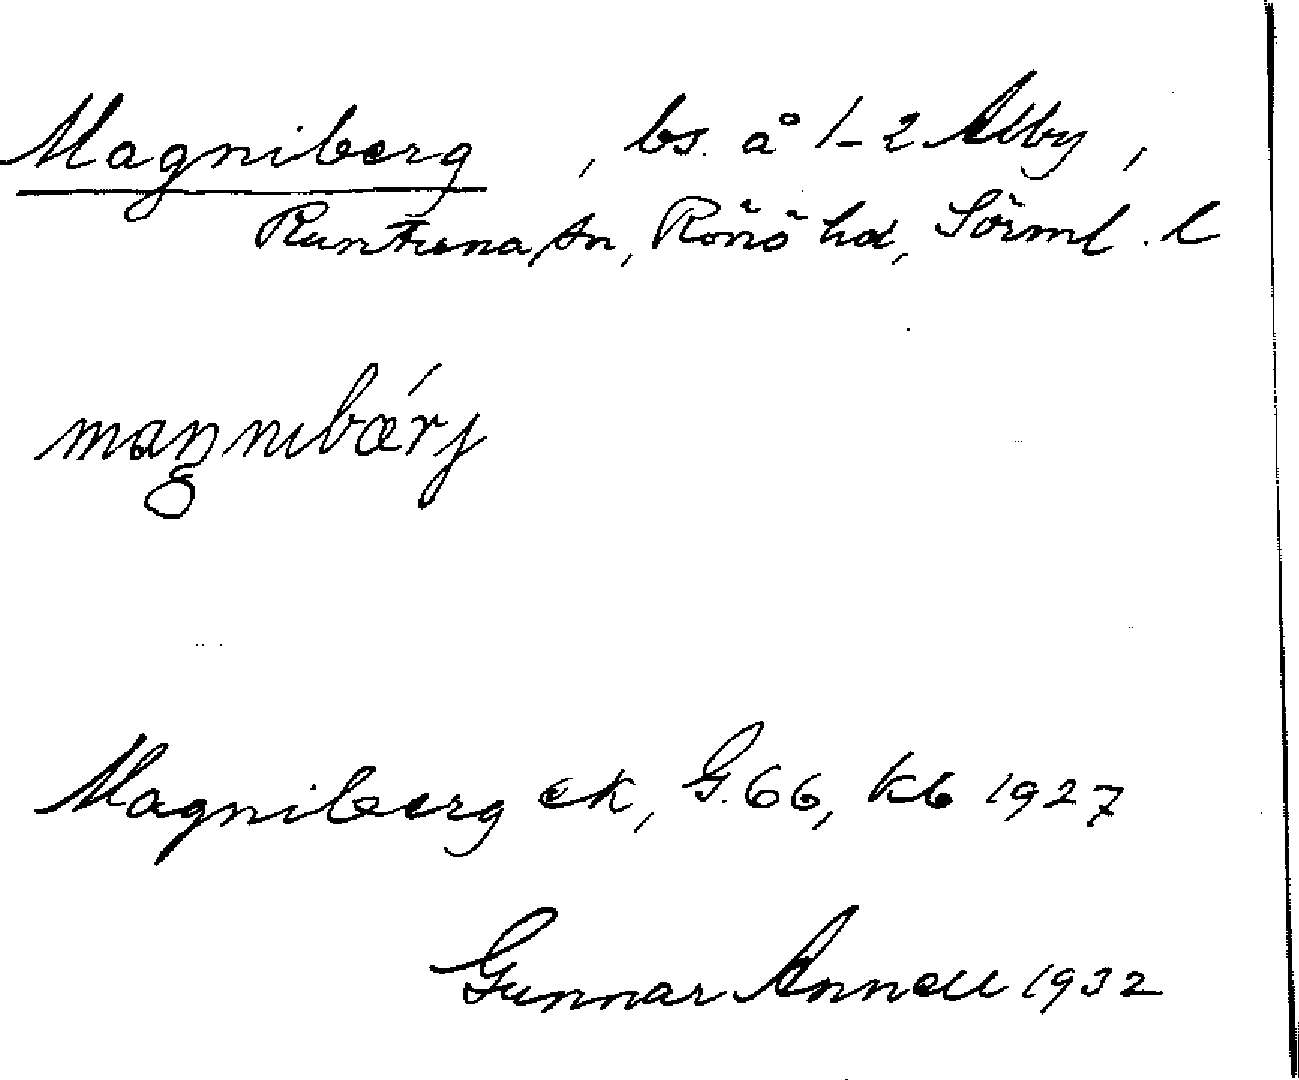 Magniberg, bs. å 1-2 Alby,
Runtuna sn, Rönö hd, Sörml. l
Magniberg ek, G.66, kb 1927
Gunnar Annell 1932